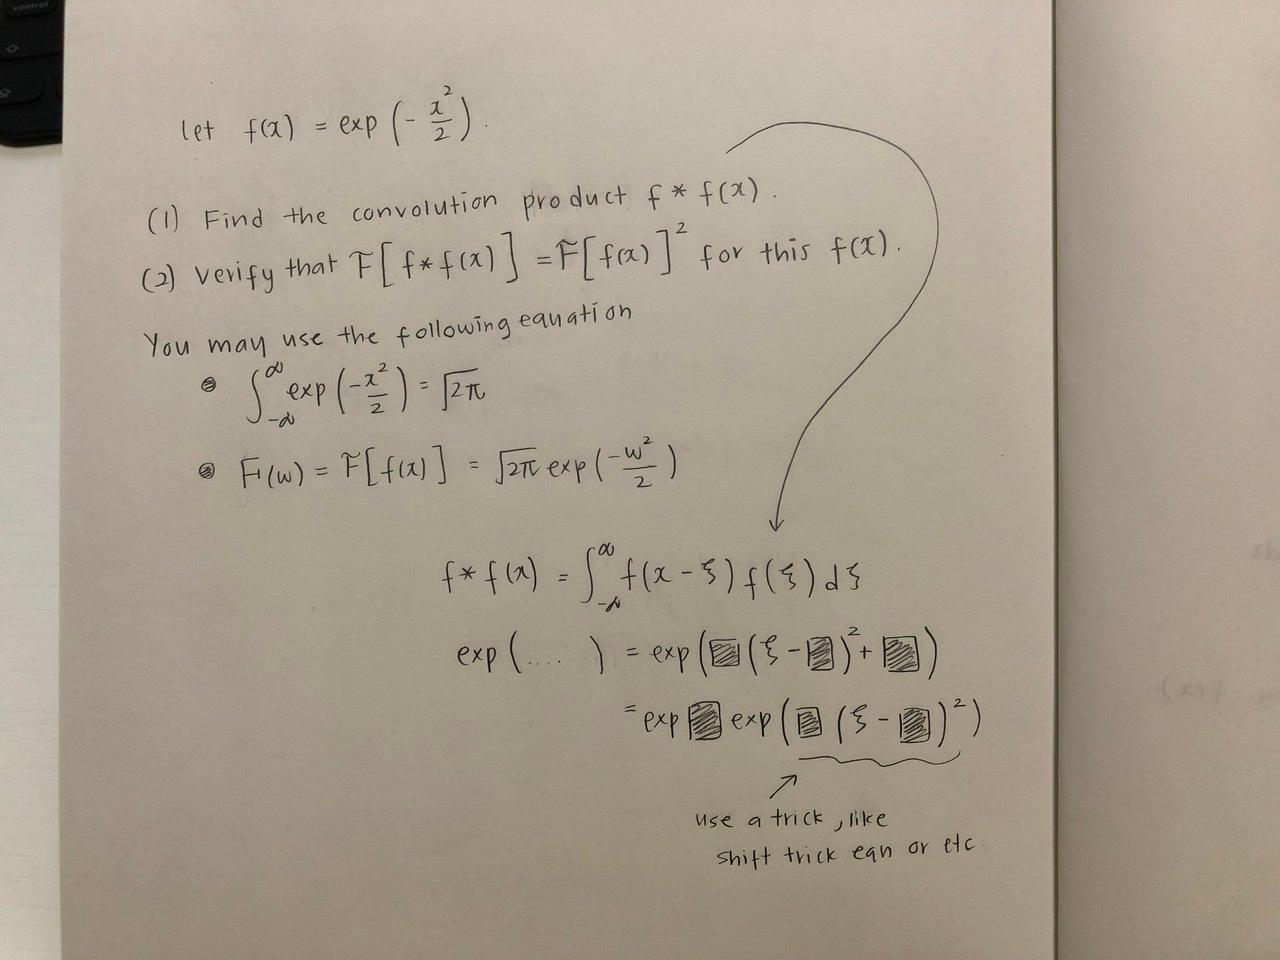 let f(x) = exp(-x²/2).
(1) Find the convolution product f * f(x).
(2) verify that F[f*f(x)] = F[f(x)]² for this f(x).
You may use the following equation
• ∫_{-∞}^{∞} exp(-x²/2) = √2π
• F(w) = F[f(x)] = √2π exp(-w²/2)
f*f(x) = ∫_{-∞}^{∞} f(x-ξ) f(ξ) dξ
exp(....) = exp(□(ξ-□)²+□)
= exp□ exp(□(ξ-□)²)
use a trick, like
shift trick eqn or etc.
control